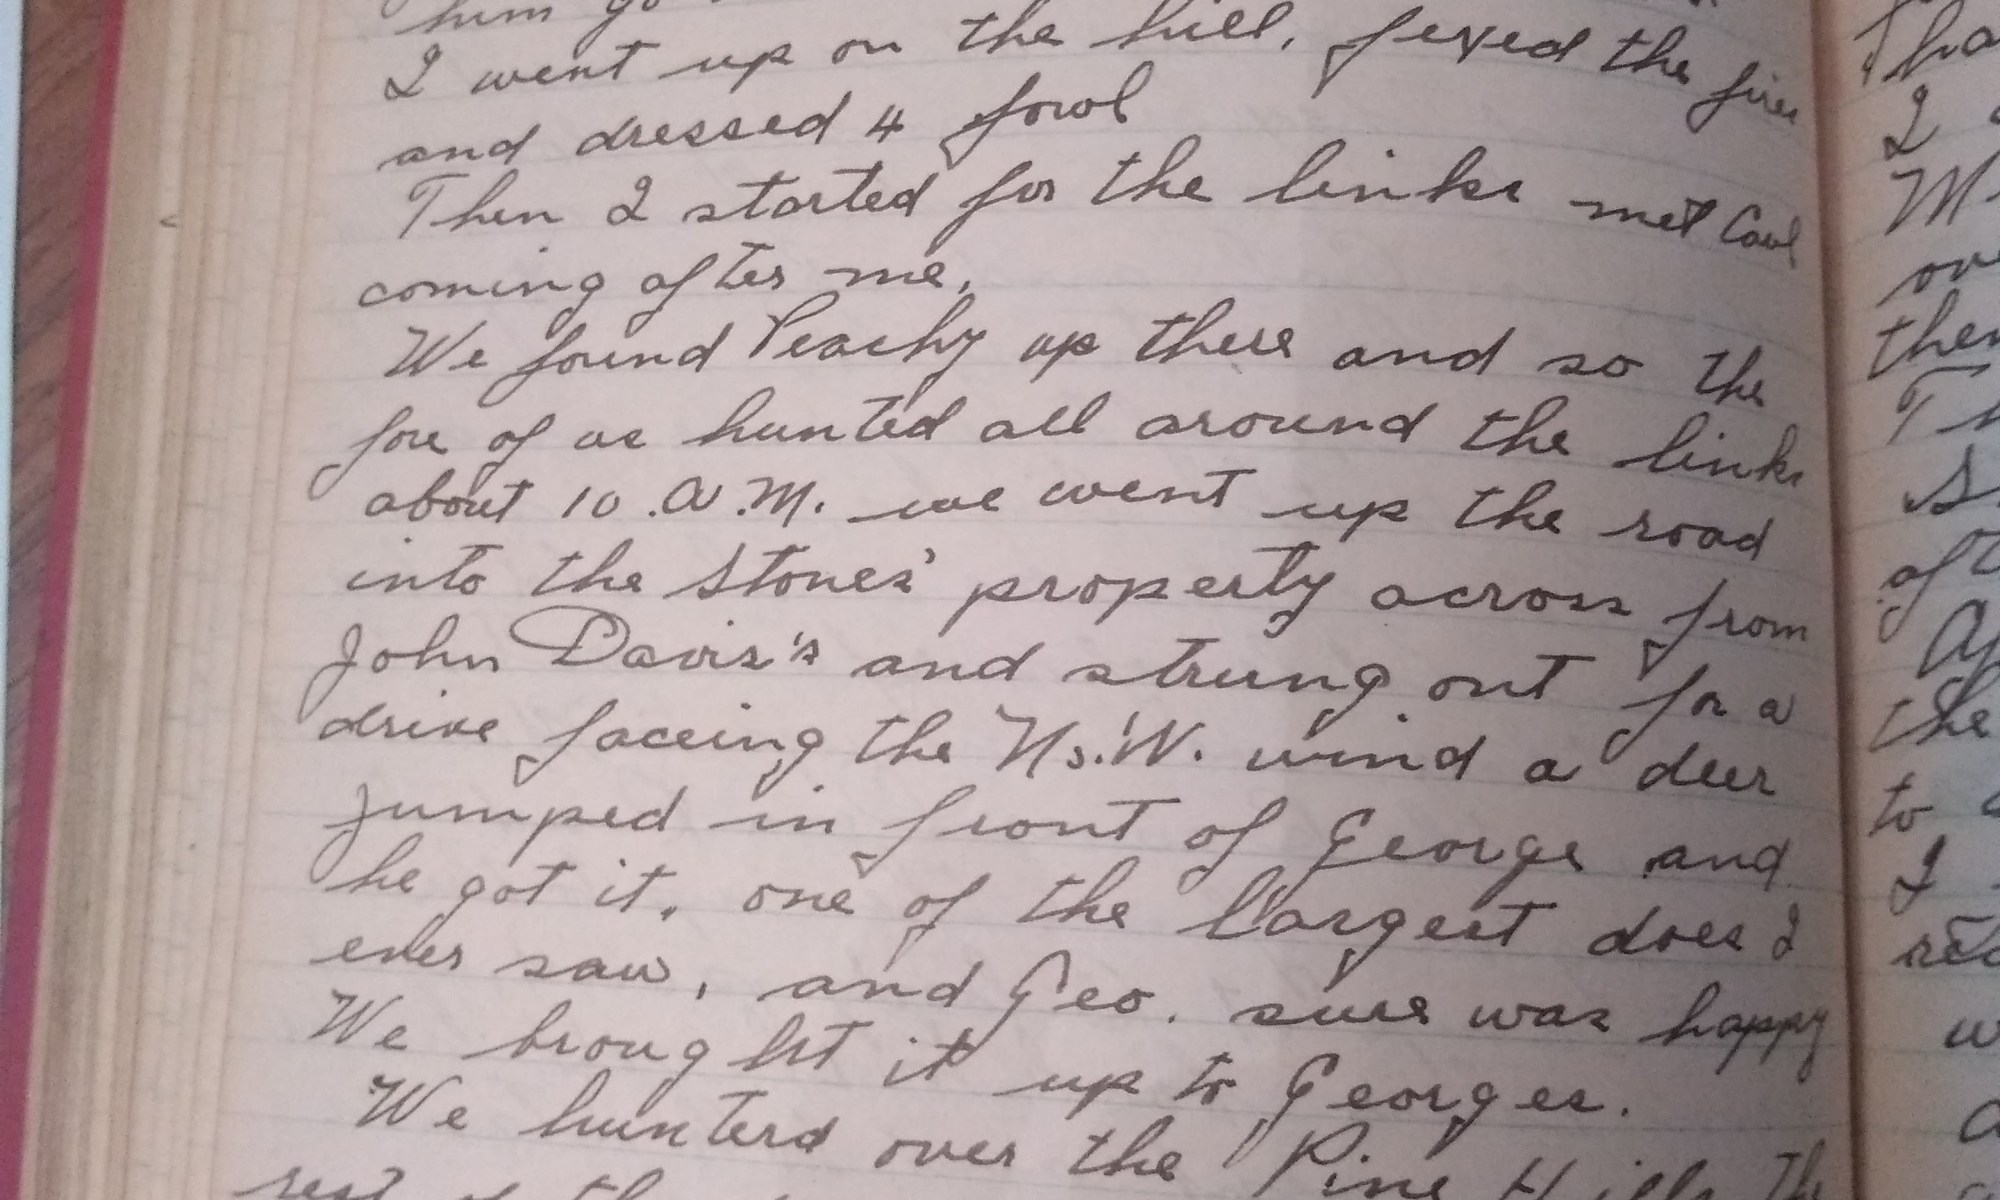 him go
I went up on the hill, fexed the fires
and dressed 4 fowl
Then I started for the links met Carl
coming after me.
We found Peachy up there and so the
fore of us hunted all around the links
about 10 .A.M. we went up the road
into the Stones' property across from
John Davis's and strung out for a
drive faceing the Ns.'W. wind a deer
jumped in front of George and
he got it. one of the largest does I
ever saw, and Geo. sure was happy
We brought it up to Georges.
We hunterd over the Pine Hills the
rest of the
Tha
I
M
ove
then
Th
S
aft
Af
the
to
I
rec
w
a